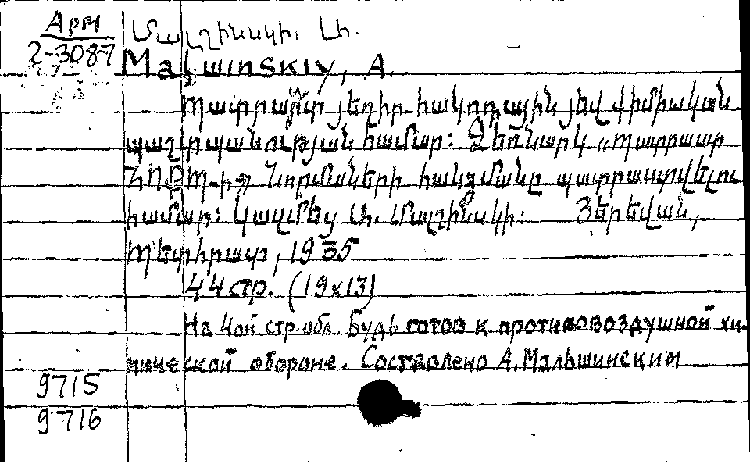 Арм
2-3087
Մալշինսկի. Ա.
Malшinskiy, A.
Պատրաստ յեղիր հակոդային յեվ քիմիական
պաշտպանության համար: Ձեռնարկ «պատրաստ
ՀՈՔՊ-ի» նորմաների հանձմանը պատրաստվելու
համար: Կազմեց Ա. Մալշինսկի: Յերեվան,
Պետհրատ, 1935
44 стр. (19x13)
На 4ой стр обл. Будь готов к противовоздушной хи-
мической обороне. Составлено А. Мальшинским
9715
9716